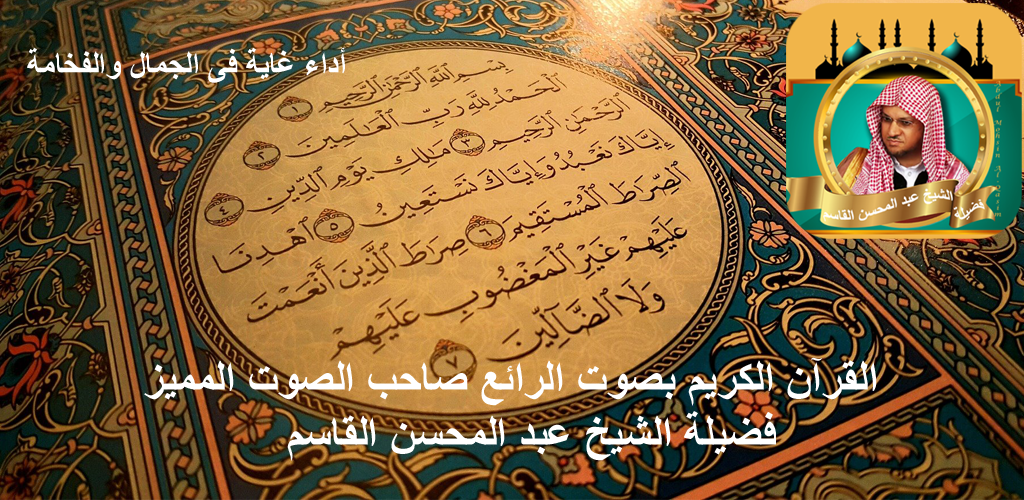 أداء غاية في الجمال والفخامة
بِسْمِ ٱللَّهِ ٱلرَّحْمَٰنِ ٱلرَّحِيمِ ١
ٱلْحَمْدُ لِلَّهِ رَبِّ ٱلْعَٰلَمِينَ ٢
ٱلرَّحْمَٰنِ ٱلرَّحِيمِ ٣ مَٰلِكِ يَوْمِ ٱلدِّينِ ٤
إِيَّاكَ نَعْبُدُ وَإِيَّاكَ نَسْتَعِينُ ٥ ٱهْدِنَا
ٱلصِّرَٰطَ ٱلْمُسْتَقِيمَ ٦ صِرَٰطَ ٱلَّذِينَ أَنْعَمْتَ
عَلَيْهِمْ غَيْرِ ٱلْمَغْضُوبِ عَلَيْهِمْ
وَلَا ٱلضَّآلِّينَ ٧
فضيلة الشيخ عبد المحسن القاسم
Abdul Mohsin Al Qasim
القرآن الكريم بصوت الرائع صاحب الصوت المميز
فضيلة الشيخ عبد المحسن القاسم